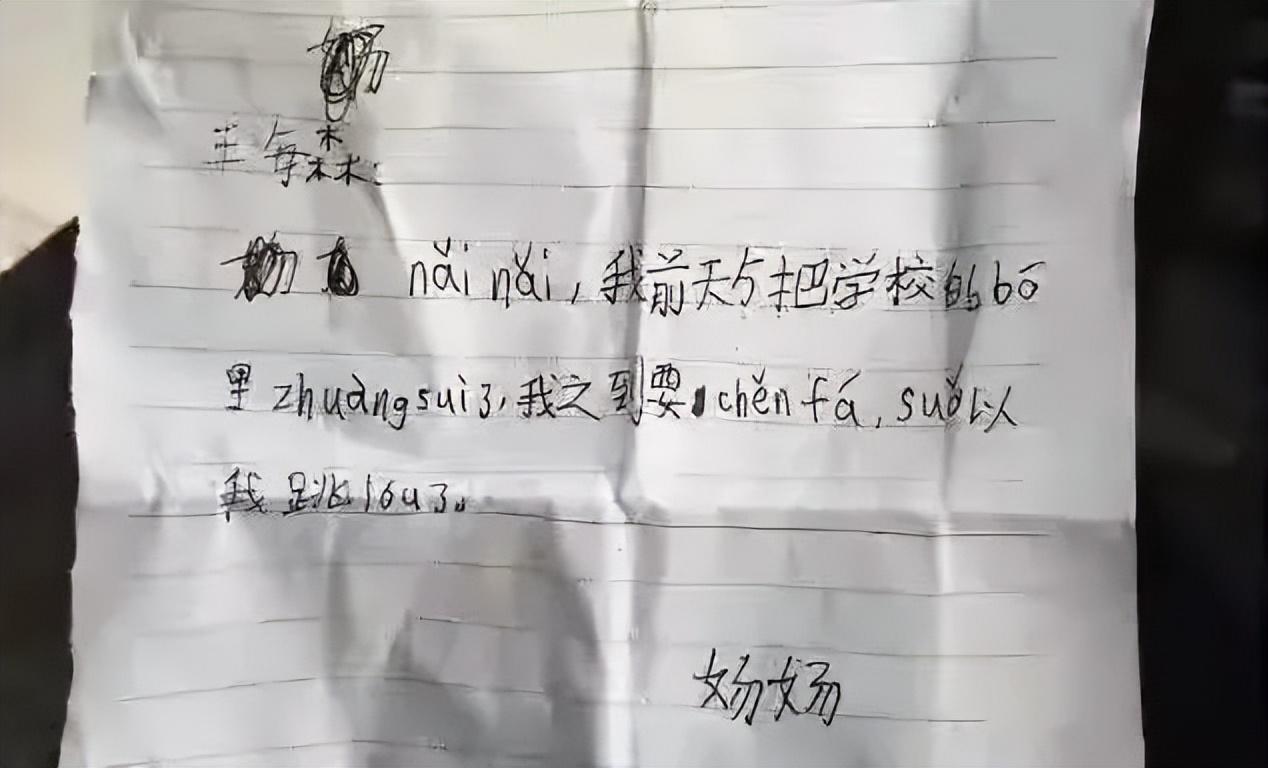 王每森：
nǎi nǎi，我前天与把学校的bō
里zhuàngsuì了，我之到要chěn fá，suǒ以
我跳lóu了。
妫妫